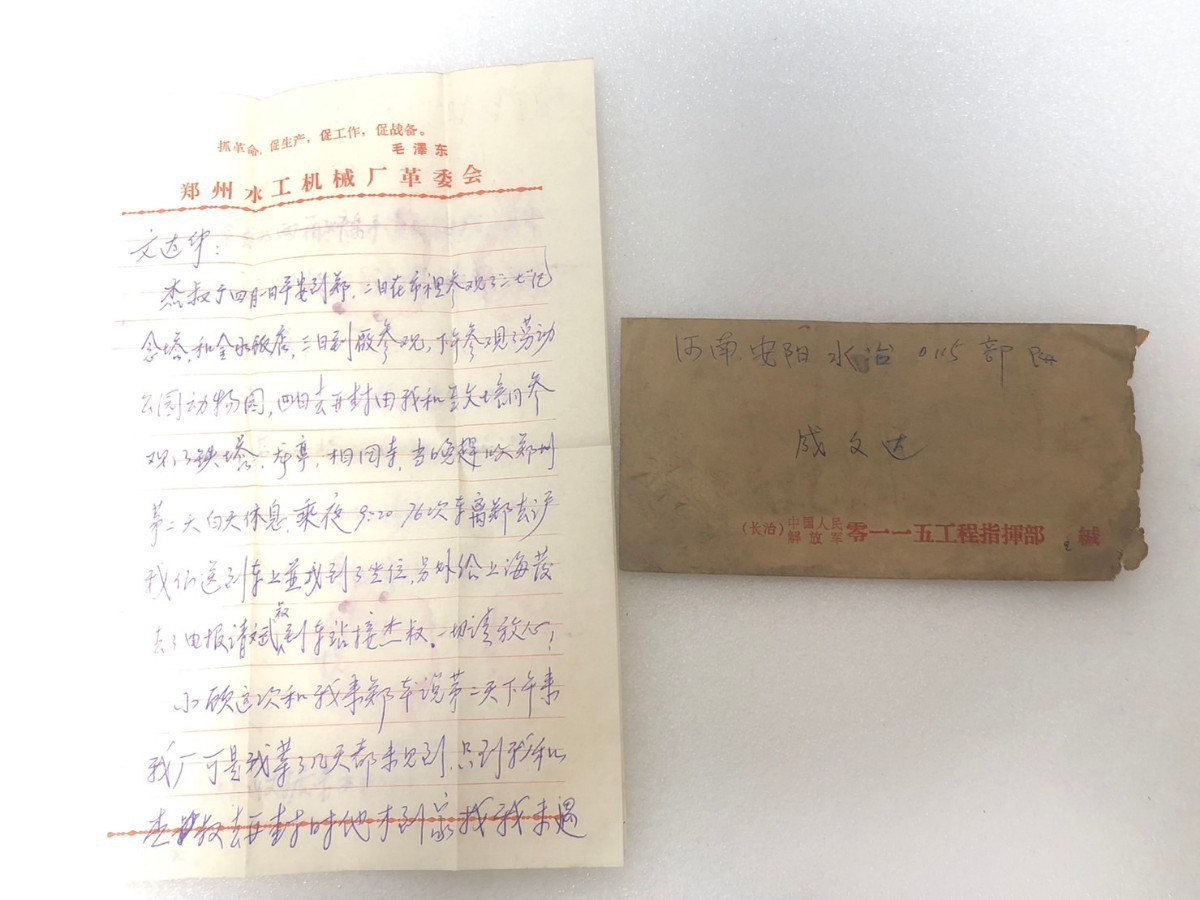 抓革命,促生产,促工作,促战备。
毛澤东
郑州水工机械厂革委会
文达
杰叔于四月一日平安到郑,二日在市裡参观了二七记
念塔和金水饭店,三日到厰参观,下午参观了劳动
公园动物园,四日去开封由我和 陪同参
观了铁塔、龙亭,相国寺,当晚趕回郑州
第二天白天休息,乘夜9:20 76次车离郑去沪
我们送到车上並找到了坐位,另外给上海發
去了电报请文武叔到车站接杰叔。一切请放心!
小顾这次和我来郑车说第二天下午来
我厂可是我等了几天都未见到,只到我和
杰叔去开封时他才到家找我未遇
河南安阳水冶0115部队
成文达
(长治)中国人民解放军零一一五工程指揮部 缄